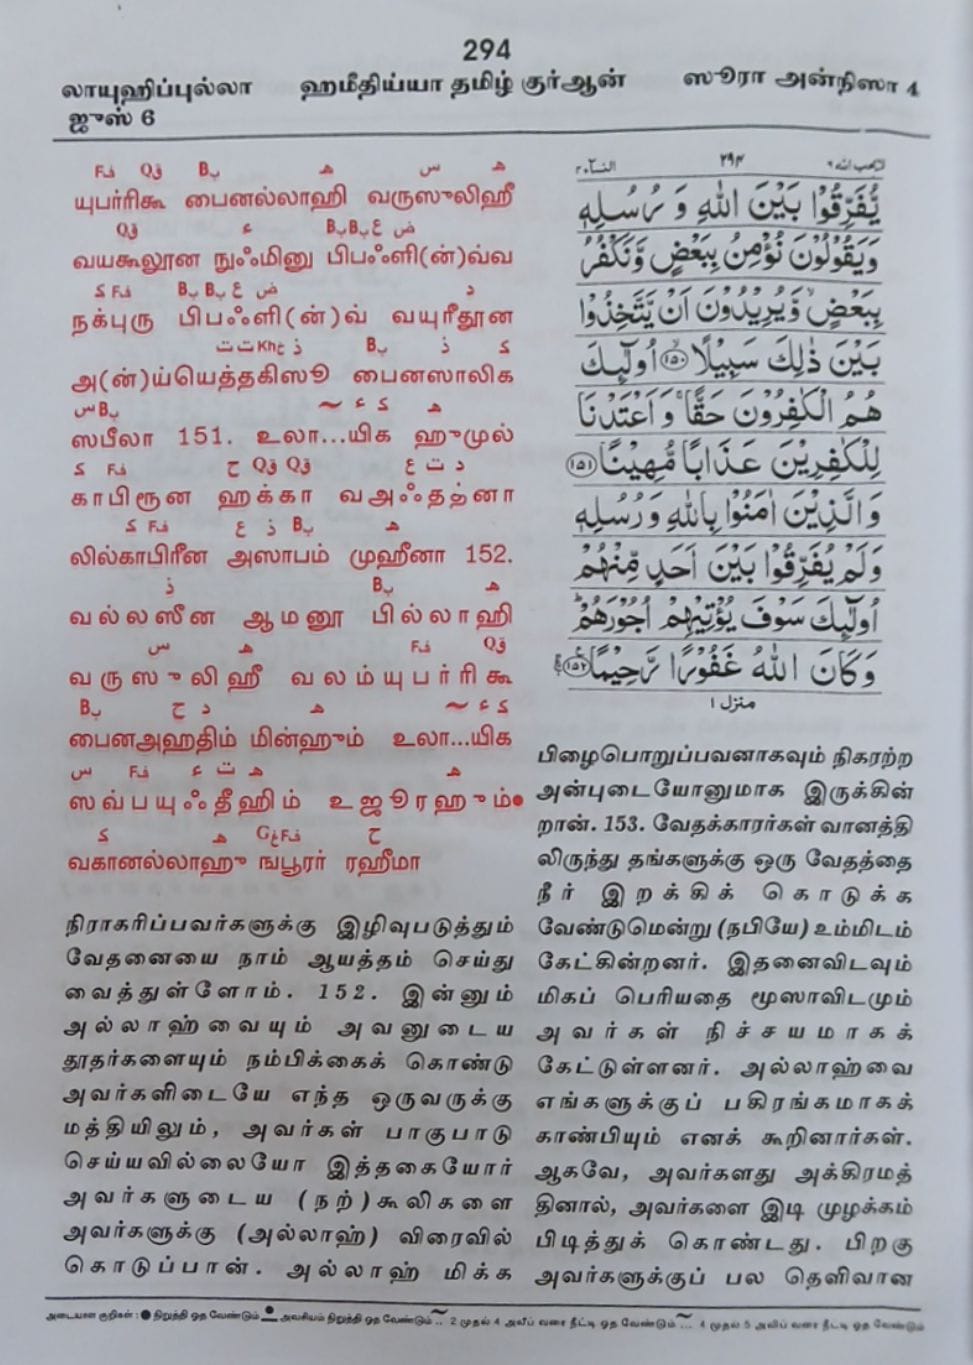 294
லாயுஹிப்புல்லா ஹமீதிய்யா தமிழ் குர்ஆன் ஸூரா அன்நிஸா 4
ஜுஸ் 6
Fف Qق Bب ه س ه
யுபர்ரிகூ பைனல்லாஹி வருஸுலிஹீ
Qق ء Bب Bب ع ض
வயகூலூன நுஃமினு பிபஃளி(ன்)வ்வ
ك Fف Bب Bب ع ض د
நக்புரு பிபஃளி(ன்)வ் வயுரீதூன
ت ت Khخ ذ Bب ذ ك
அ(ன்)ய்யெத்தகிஸூ பைனஸாலிக
س Bب ~ ء ك ه
ஸபீலா 151. உலா...யிக ஹுமுல்
ك Fف ح Qق Qق ع ت د
காபிரூன ஹக்கா வஅஃதத்னா
ك Fف ع ذ Bب ه
லில்காபிரீன அஸாபம் முஹீனா 152.
ذ Bب ه
வல்லஸீன ஆமனூ பில்லாஹி
س ه Fف Qق
வருஸுலிஹீ வலம்யுபர்ரிகூ
Bب ح د ه ~ ء ك
பைனஅஹதிம் மின்ஹும் உலா...யிக
س Fف ء ت ه ه
ஸவ்பயுஃதீஹிம் உஜூரஹும்●
ك ه Gغ Fف ح
வகானல்லாஹு ஙபூரர் ரஹீமா
நிராகரிப்பவர்களுக்கு இழிவுபடுத்தும்
வேதனையை நாம் ஆயத்தம் செய்து
வைத்துள்ளோம். 152. இன்னும்
அல்லாஹ்வையும் அவனுடைய
தூதர்களையும் நம்பிக்கைக் கொண்டு
அவர்களிடையே எந்த ஒருவருக்கு
மத்தியிலும், அவர்கள் பாகுபாடு
செய்யவில்லையோ இத்தகையோர்
அவர்களுடைய (நற்)கூலிகளை
அவர்களுக்கு (அல்லாஹ்) விரைவில்
கொடுப்பான். அல்லாஹ் மிக்க
لايحب الله ٦ ٢٩٤ النسآء ٤
يُّفَرِّقُوْا بَيْنَ اللّٰهِ وَ رُسُلِهٖ
وَيَقُوْلُوْنَ نُؤْمِنُ بِبَعْضٍ وَّنَكْفُرُ
بِبَعْضٍ ۙ وَّيُرِيْدُوْنَ اَنْ يَّتَّخِذُوْا
بَيْنَ ذٰلِكَ سَبِيْلًا ۙ ﴿١٥٠﴾ اُولٰٓئِكَ
هُمُ الْكٰفِرُوْنَ حَقًّا ۚ وَ اَعْتَدْنَا
لِلْكٰفِرِيْنَ عَذَابًا مُّهِيْنًا ﴿١٥١﴾
وَ الَّذِيْنَ اٰمَنُوْا بِاللّٰهِ وَ رُسُلِهٖ
وَلَمْ يُفَرِّقُوْا بَيْنَ اَحَدٍ مِّنْهُمْ
اُولٰٓئِكَ سَوْفَ يُؤْتِيْهِمْ اُجُوْرَهُمْ ؕ
وَكَانَ اللّٰهُ غَفُوْرًا رَّحِيْمًا ﴿١٥٢﴾
منزل ١
பிழைபொறுப்பவனாகவும் நிகரற்ற
அன்புடையோனுமாக இருக்கின்
றான். 153. வேதக்காரர்கள் வானத்தி
லிருந்து தங்களுக்கு ஒரு வேதத்தை
நீர் இறக்கிக் கொடுக்க
வேண்டுமென்று (நபியே) உம்மிடம்
கேட்கின்றனர். இதனைவிடவும்
மிகப் பெரியதை மூஸாவிடமும்
அவர்கள் நிச்சயமாகக்
கேட்டுள்ளனர். அல்லாஹ்வை
எங்களுக்குப் பகிரங்கமாகக்
காண்பியும் எனக் கூறினார்கள்.
ஆகவே, அவர்களது அக்கிரமத்
தினால், அவர்களை இடி முழக்கம்
பிடித்துக் கொண்டது. பிறகு
அவர்களுக்குப் பல தெளிவான
அடையாள குறிகள் : ● நிறுத்தி ஓத வேண்டும் ● அவசியம் நிறுத்தி ஓத வேண்டும் ~.. 2 முதல் 4 அலீப் வரை நீட்டி ஓத வேண்டும் ~... 4 முதல் 5 அலிப் வரை நீட்டி ஓத வேண்டும்